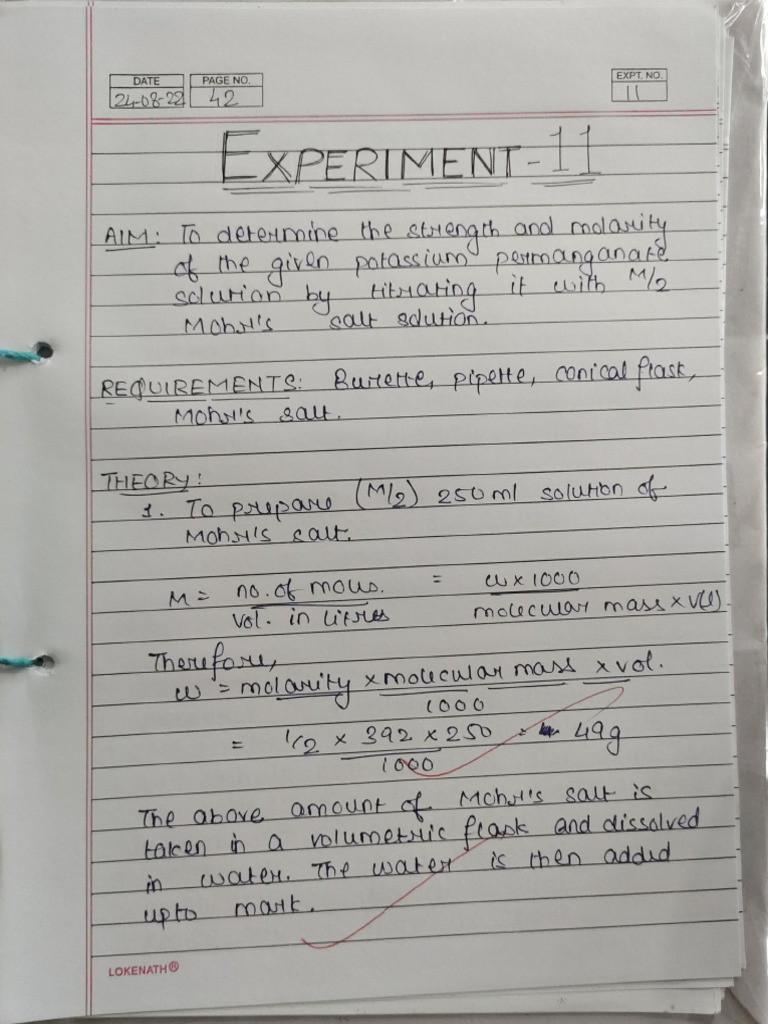 DATE PAGE NO. EXPT. NO.
24-08-22 42 11
EXPERIMENT-11
AIM: To determine the strength and molarity
of the given potassium permanganate
solution by titrating it with M/2
Mohr's salt solution.
REQUIREMENTS: Burette, pipette, conical flask,
Mohr's salt.
THEORY:
1. To prepare (M/2) 250ml solution of
Mohr's salt.
M = no. of moles. / vol. in litres = w x 1000 / molecular mass x v(l)
Therefore,
w = molarity x molecular mass x vol. / 1000
= 1/2 x 392 x 250 / 1000 = 49g
The above amount of Mohr's salt is
taken in a volumetric flask and dissolved
in water. The water is then added
upto mark.
LOKENATH®